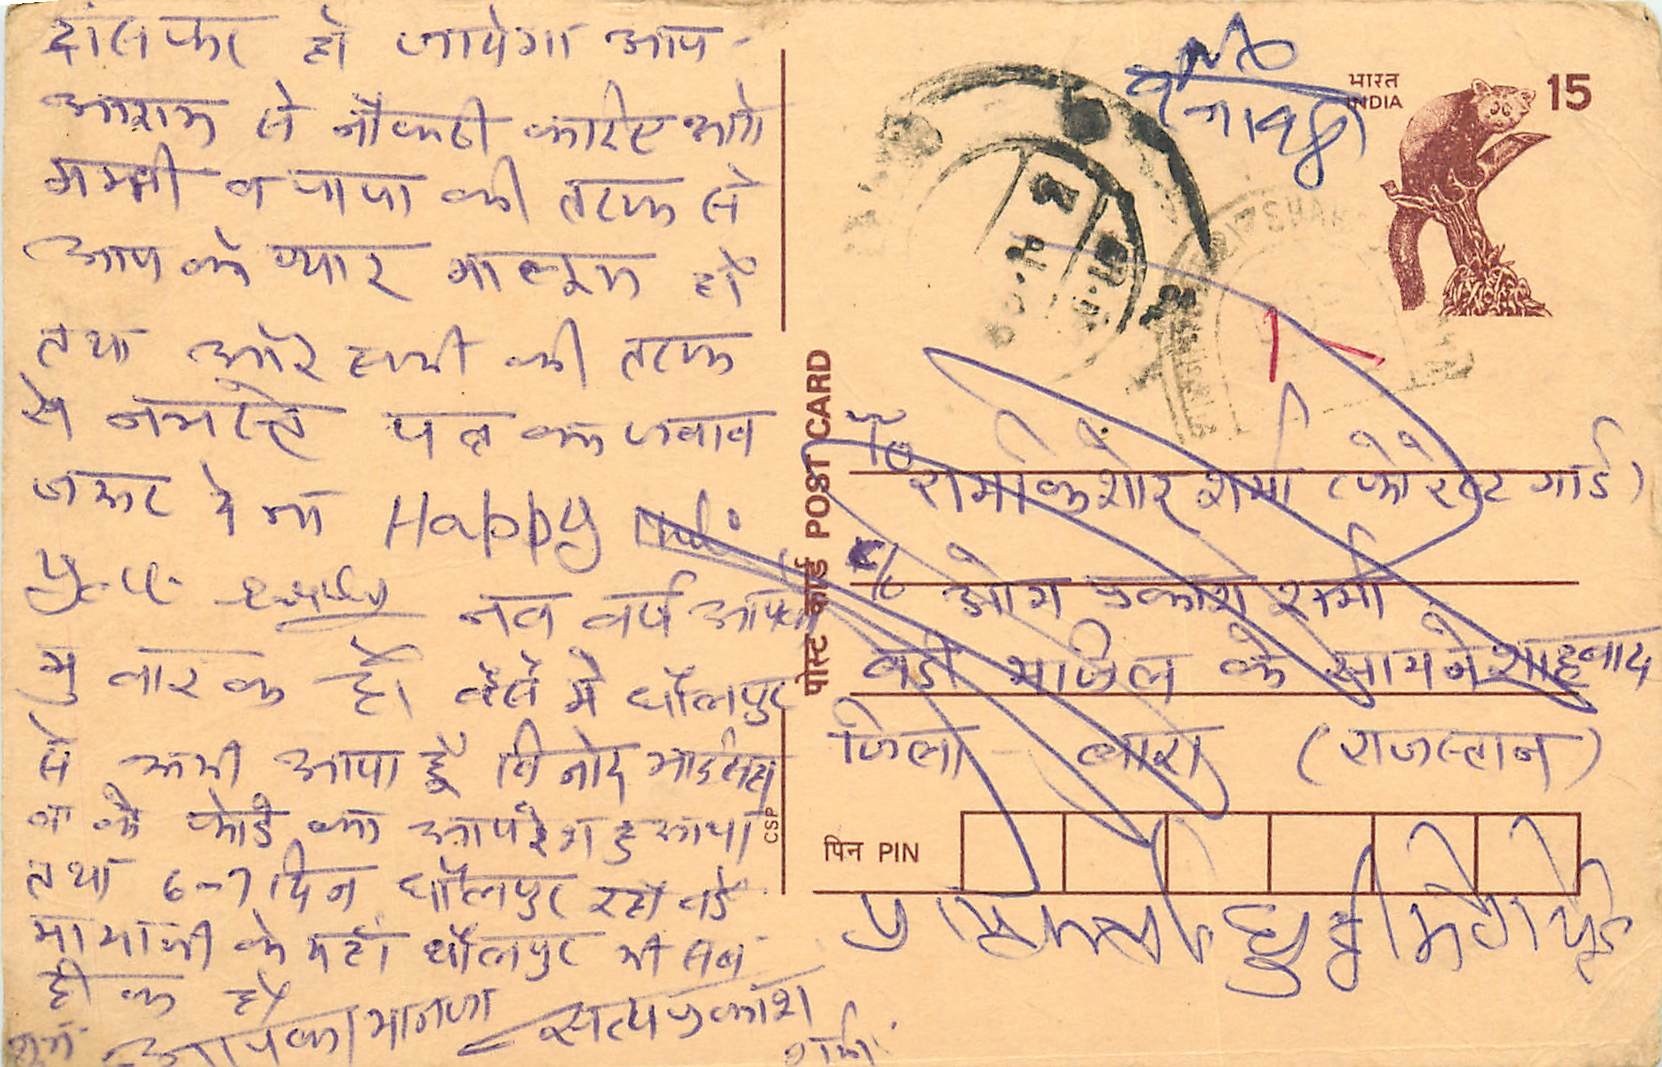 ट्रांसफर हो जायेगा आप
आराम से नौकरी करिए आगे
मम्मी व पापा की तरफ से
आप को प्यार मालूम हो
तथा और सभी की तरफ
से नमस्ते पत्र का जवाब
जरूर देना Happy
नव वर्ष आपको
मुबारक हो। वैसे मै धौलपुर
से अभी आया हूँ विनोद भाईसहा
ब के फोडे का आपरेशन हुआ था
तथा 6-7 दिन धौलपुर रहा बडे
मामाजी के यहां धौलपुर भी सब
ठीक है
आपका भानजा सत्यप्रकाश
शर्मा
भारत
INDIA
15
पोस्ट कार्ड POST CARD
CSP
To
रामकिशोर शर्मा (फोरेस्ट गार्ड)
C/o ओम प्रकाश शर्मा
बडी मंजिल के सामने शाहबाद
जिला - बारां (राजस्थान)
पिन PIN